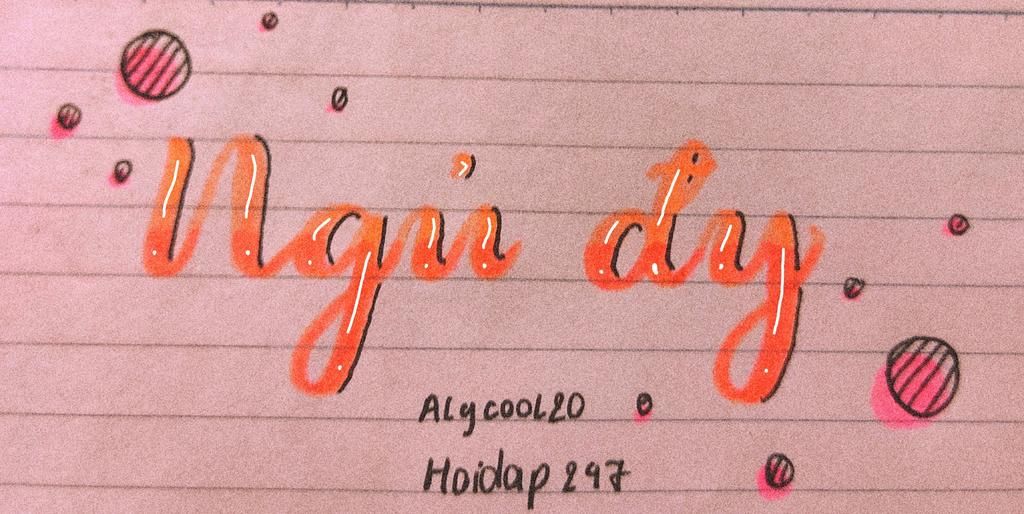 Ngii dy
ALycooL20
Hoidap 247